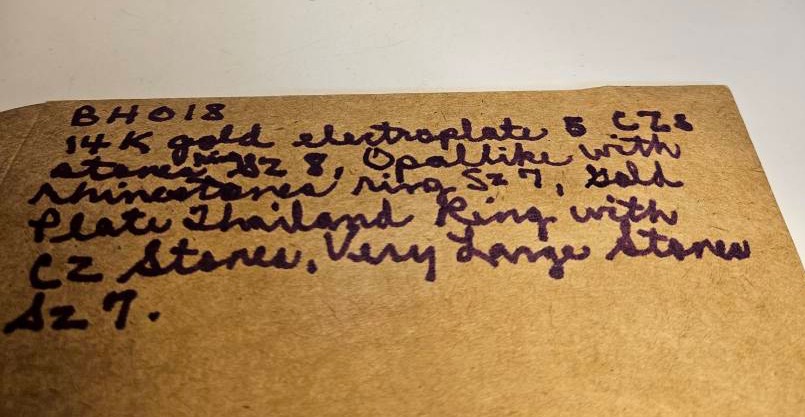 BH018
14K gold electroplate 5 CZs
stones ring Sz 8, Opallike with
rhinestones ring Sz 7, Gold
Plate Thailand Ring with
CZ Stones, Very Large Stones
Sz 7.